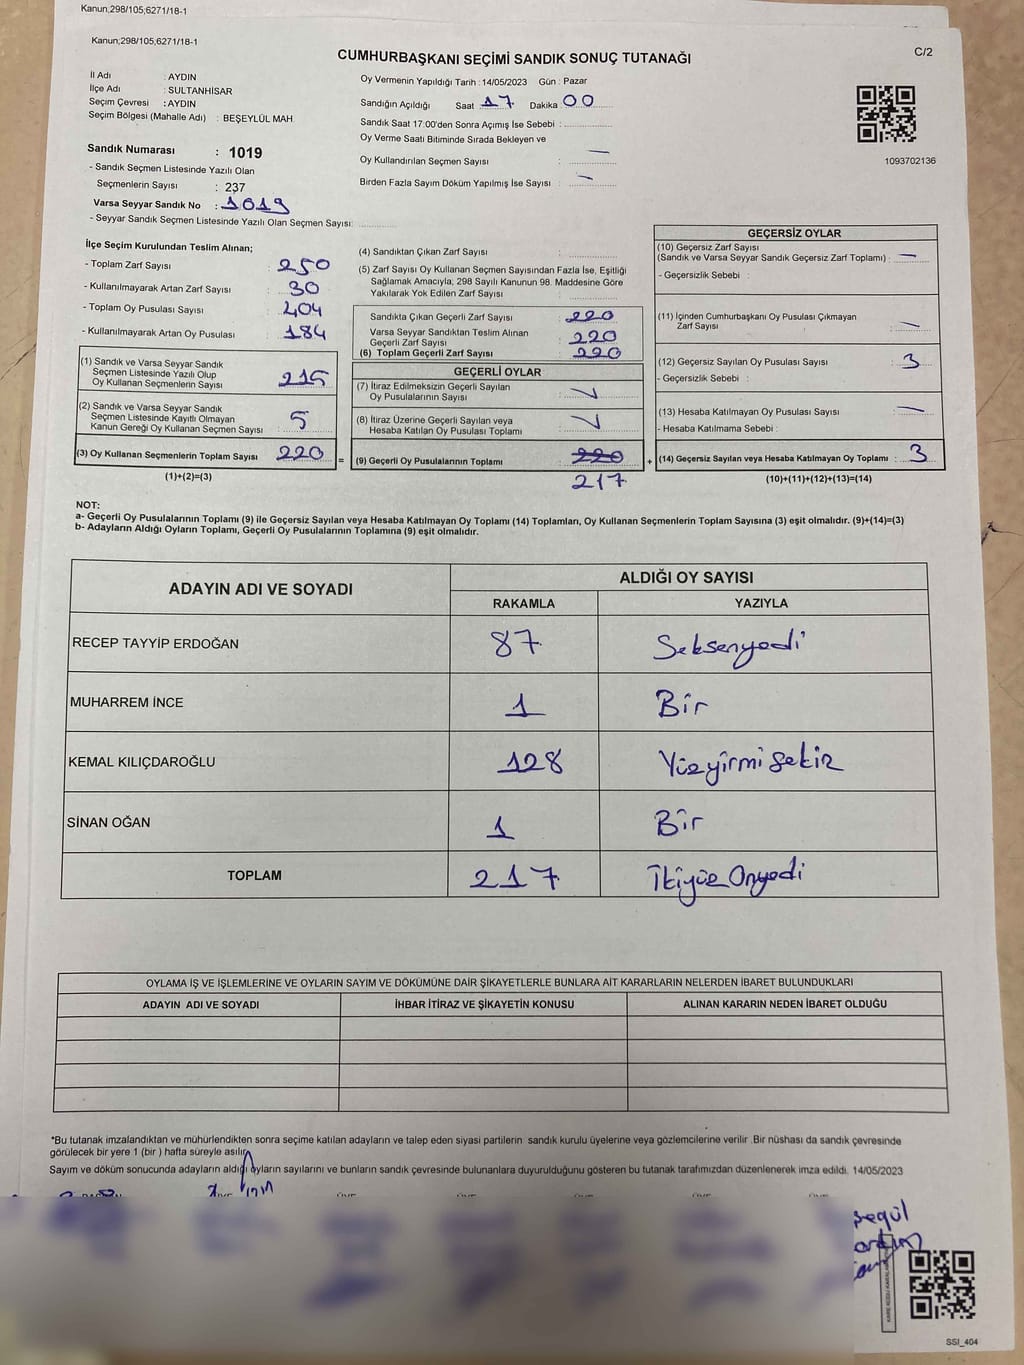 Kanun;298/105;6271/18-1
Kanun;298/105;6271/18-1
C/2
CUMHURBAŞKANI SEÇİMİ SANDIK SONUÇ TUTANAĞI
İl Adı : AYDIN
İlçe Adı : SULTANHİSAR
Seçim Çevresi : AYDIN
Seçim Bölgesi (Mahalle Adı) : BEŞEYLÜL MAH.
Sandık Numarası : 1019
- Sandık Seçmen Listesinde Yazılı Olan
Seçmenlerin Sayısı : 237
Varsa Seyyar Sandık No : 1019
- Seyyar Sandık Seçmen Listesinde Yazılı Olan Seçmen Sayısı:
Oy Vermenin Yapıldığı Tarih : 14/05/2023 Gün : Pazar
Sandığın Açıldığı Saat 17 Dakika 00
Sandık Saat 17:00'den Sonra Açımış İse Sebebi :
Oy Verme Saati Bitiminde Sırada Bekleyen ve
Oy Kullandırılan Seçmen Sayısı : —
Birden Fazla Sayım Döküm Yapılmış İse Sayısı : —
1093702136
İlçe Seçim Kurulundan Teslim Alınan;
- Toplam Zarf Sayısı : 250
- Kullanılmayarak Artan Zarf Sayısı : 30
- Toplam Oy Pusulası Sayısı : 404
- Kullanılmayarak Artan Oy Pusulası : 184
(1) Sandık ve Varsa Seyyar Sandık
Seçmen Listesinde Yazılı Olup
Oy Kullanan Seçmenlerin Sayısı : 215
(2) Sandık ve Varsa Seyyar Sandık
Seçmen Listesinde Kayıtlı Olmayan
Kanun Gereği Oy Kullanan Seçmen Sayısı : 5
(3) Oy Kullanan Seçmenlerin Toplam Sayısı : 220
(1)+(2)=(3)
=
(4) Sandıktan Çıkan Zarf Sayısı :
(5) Zarf Sayısı Oy Kullanan Seçmen Sayısından Fazla İse, Eşitliği
Sağlamak Amacıyla, 298 Sayılı Kanunun 98. Maddesine Göre
Yakılarak Yok Edilen Zarf Sayısı :
Sandıkta Çıkan Geçerli Zarf Sayısı : 220
Varsa Seyyar Sandıktan Teslim Alınan
Geçerli Zarf Sayısı : 220
(6) Toplam Geçerli Zarf Sayısı : 220
GEÇERLİ OYLAR
(7) İtiraz Edilmeksizin Geçerli Sayılan
Oy Pusulalarının Sayısı :
(8) İtiraz Üzerine Geçerli Sayılan veya
Hesaba Katılan Oy Pusulası Toplamı :
(9) Geçerli Oy Pusulalarının Toplamı : 220
217
+
GEÇERSİZ OYLAR
(10) Geçersiz Zarf Sayısı
(Sandık ve Varsa Seyyar Sandık Geçersiz Zarf Toplamı) : —
- Geçersizlik Sebebi :
(11) İçinden Cumhurbaşkanı Oy Pusulası Çıkmayan
Zarf Sayısı : —
(12) Geçersiz Sayılan Oy Pusulası Sayısı : 3
- Geçersizlik Sebebi :
(13) Hesaba Katılmayan Oy Pusulası Sayısı : —
- Hesaba Katılmama Sebebi :
(14) Geçersiz Sayılan veya Hesaba Katılmayan Oy Toplamı : 3
(10)+(11)+(12)+(13)=(14)
NOT:
a- Geçerli Oy Pusulalarının Toplamı (9) ile Geçersiz Sayılan veya Hesaba Katılmayan Oy Toplamı (14) Toplamları, Oy Kullanan Seçmenlerin Toplam Sayısına (3) eşit olmalıdır. (9)+(14)=(3)
b- Adayların Aldığı Oyların Toplamı, Geçerli Oy Pusulalarının Toplamına (9) eşit olmalıdır.
ADAYIN ADI VE SOYADI ALDIĞI OY SAYISI
RAKAMLA YAZIYLA
RECEP TAYYİP ERDOĞAN 87 Seksenyedi
MUHARREM İNCE 1 Bir
KEMAL KILIÇDAROĞLU 128 Yüzyirmisekiz
SİNAN OĞAN 1 Bir
TOPLAM 217 İkiyüz Onyedi
OYLAMA İŞ VE İŞLEMLERİNE VE OYLARIN SAYIM VE DÖKÜMÜNE DAİR ŞİKAYETLERLE BUNLARA AİT KARARLARIN NELERDEN İBARET BULUNDUKLARI
ADAYIN ADI VE SOYADI İHBAR İTİRAZ VE ŞİKAYETİN KONUSU ALINAN KARARIN NEDEN İBARET OLDUĞU
*Bu tutanak imzalandıktan ve mühürlendikten sonra seçime katılan adayların ve talep eden siyasi partilerin sandık kurulu üyelerine veya gözlemcilerine verilir .Bir nüshası da sandık çevresinde
görülecek bir yere 1 (bir ) hafta süreyle asılır.
Sayım ve döküm sonucunda adayların aldığı oyların sayılarını ve bunların sandık çevresinde bulunanlara duyurulduğunu gösteren bu tutanak tarafımızdan düzenlenerek imza edildi. 14/05/2023
SSI_404